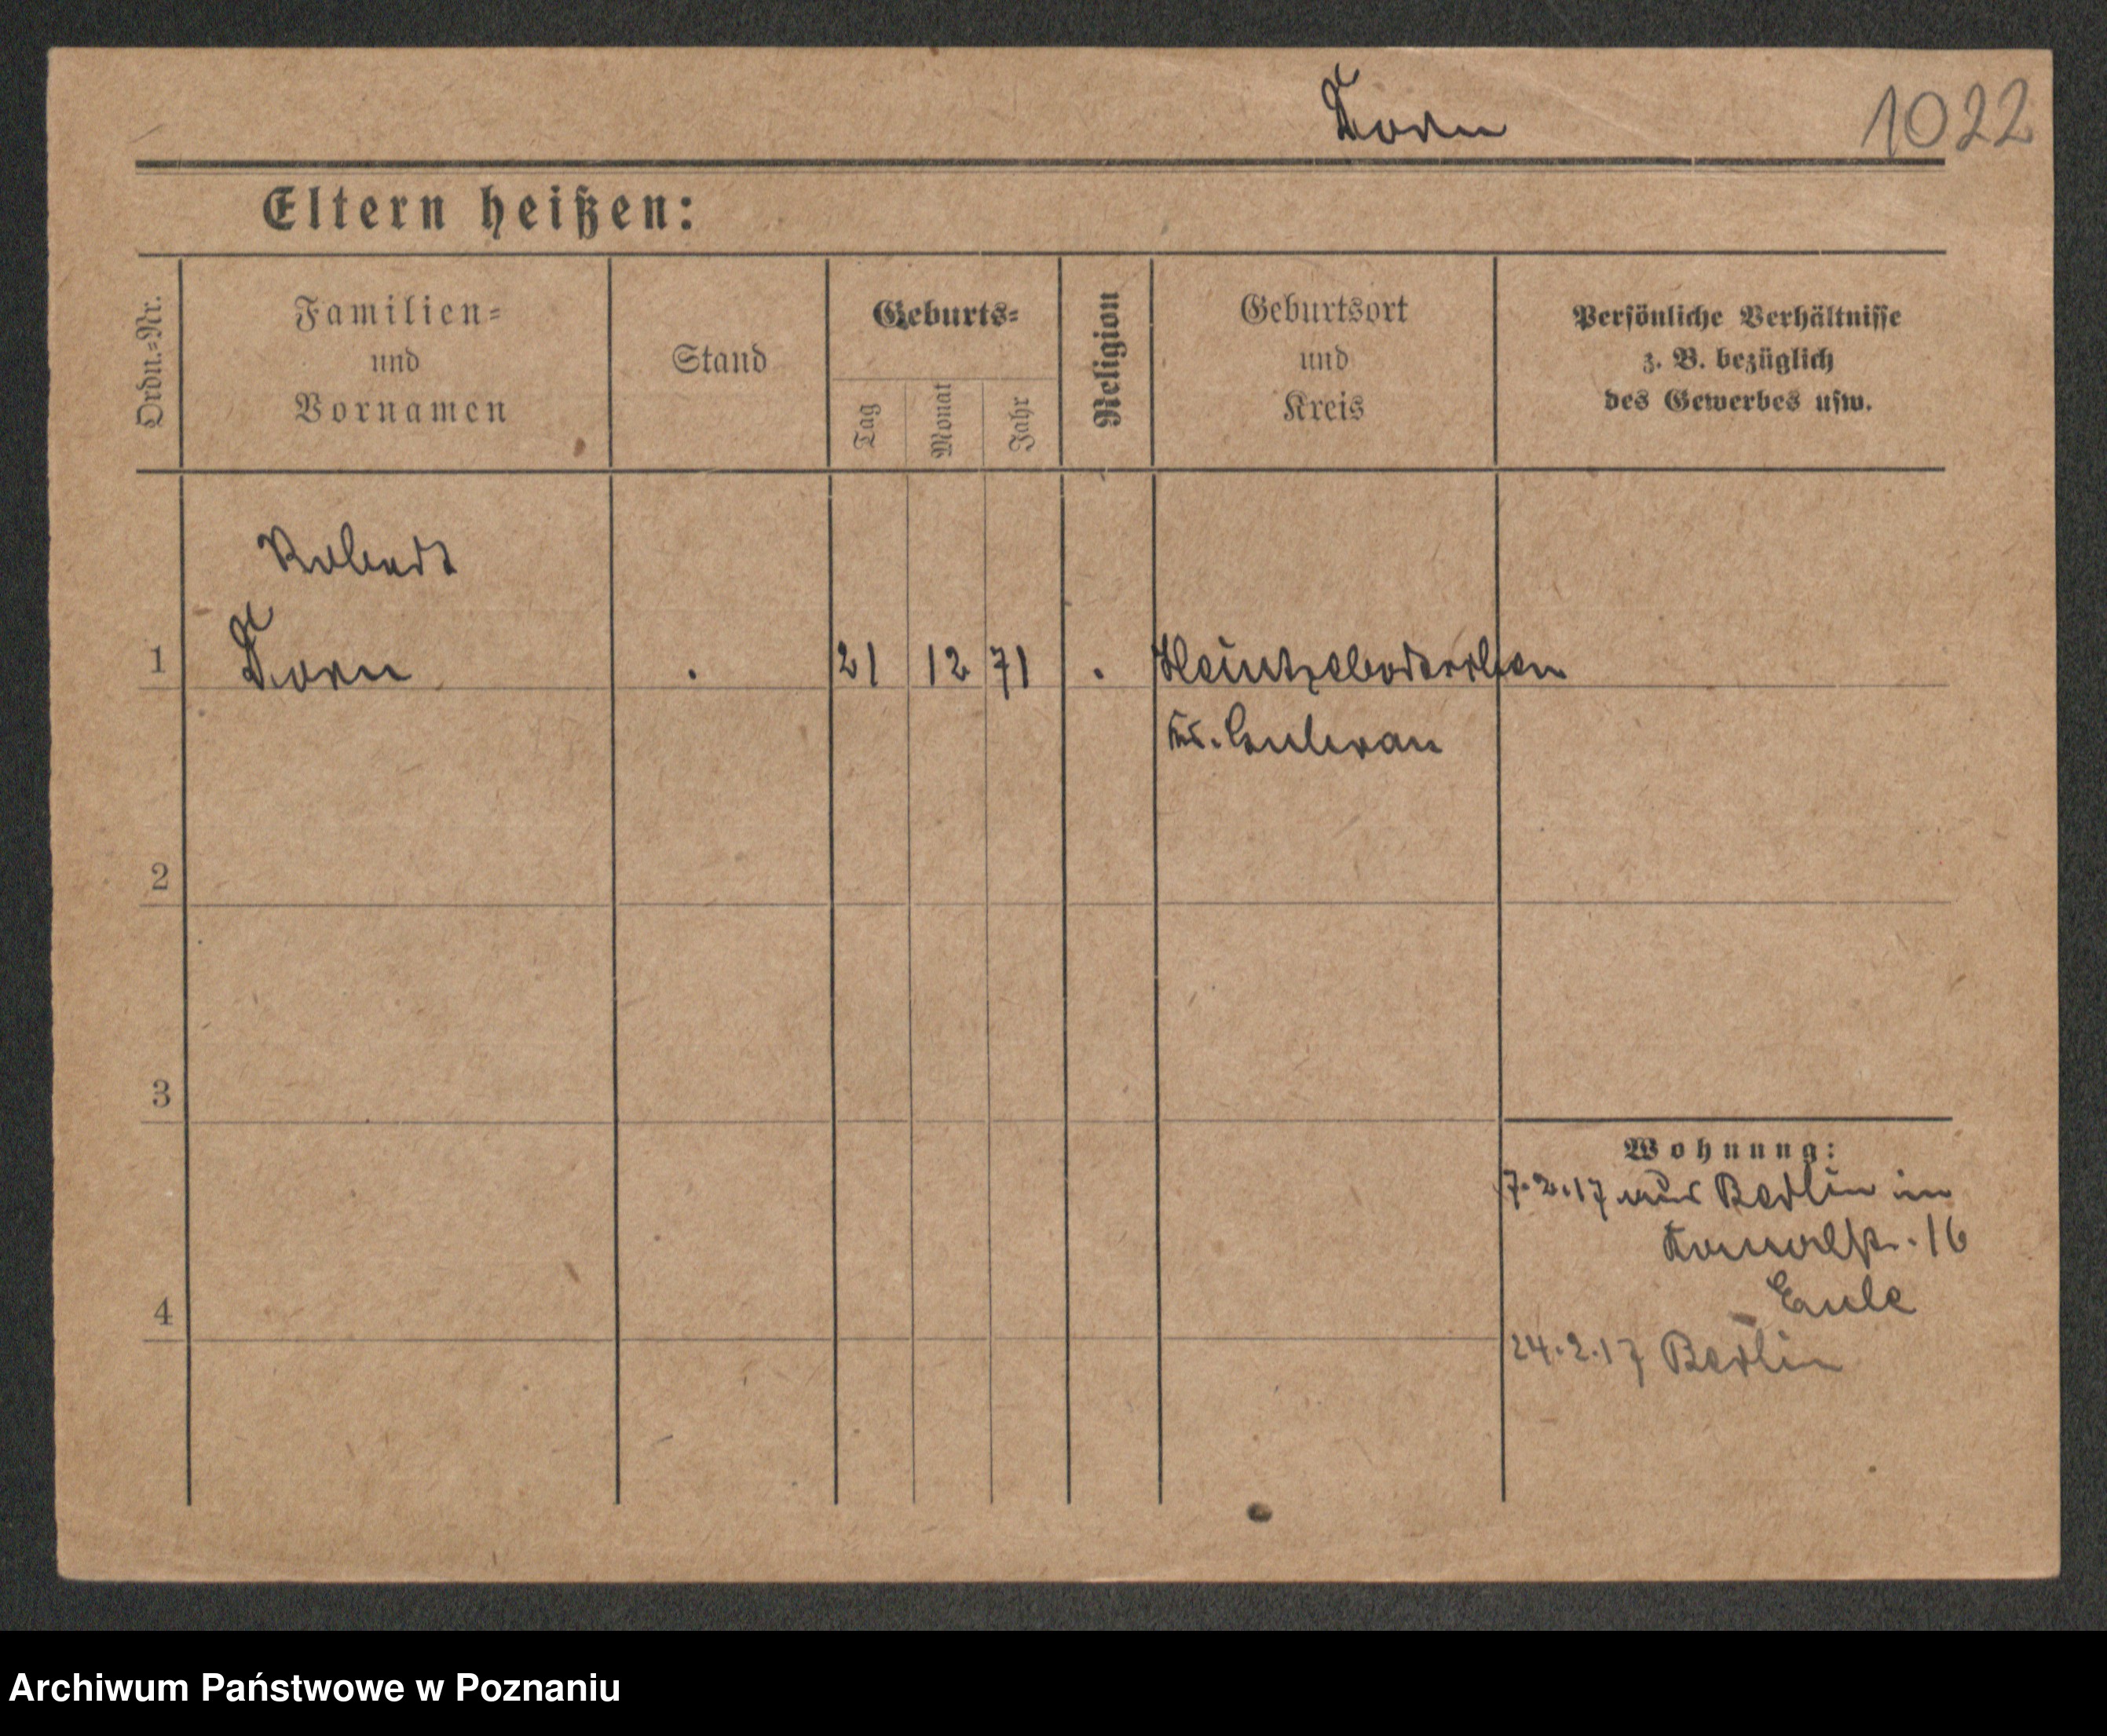 Dorn
1022
Eltern heißen:
Ordn.=Nr.
Familien=
und
Vornamen
Stand
Geburts=
Tag
Monat
Jahr
Religion
Geburtsort
und
Kreis
Persönliche Verhältnisse
z. B. bezüglich
des Gewerbes usw.
Robert
1 Dorn . 21 12 71 . Heintzebortschen
Kr. Guhrau
2
3
Wohnung:
7.2.17 aus Berlin in
16
Eule
4
24.2.17 Berlin
Archiwum Państwowe w Poznaniu